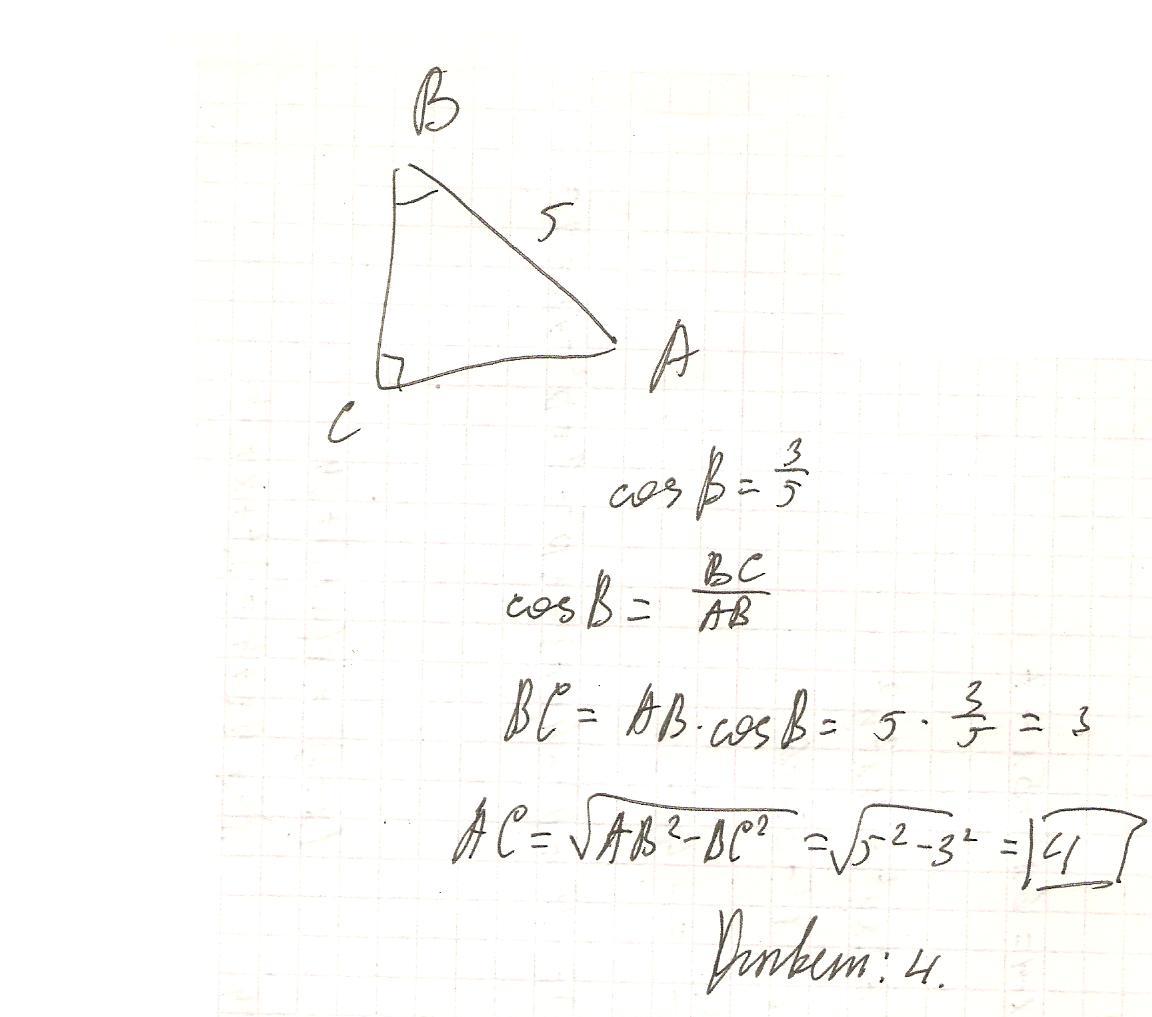 B
5
A
C
cos B = 3/5
cos B = BC/AB
BC = AB · cos B = 5 · 3/5 = 3
AC = √(AB² - BC²) = √(5² - 3²) = 4
Ответ: 4.